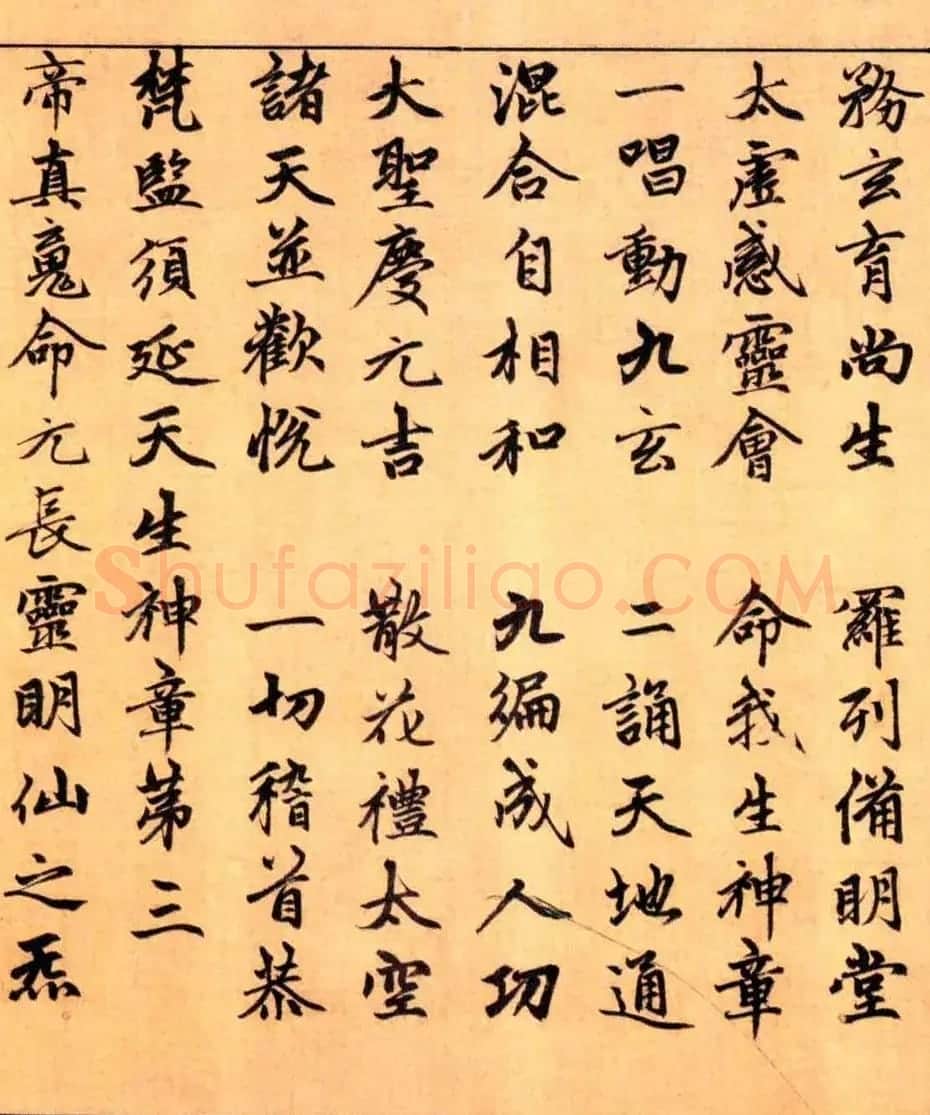 務玄育尚生 羅列備明堂
太虛感靈會 命我生神章
一唱動九玄 二誦天地通
混合自相和 九編成人功
大聖慶元吉 散花禮太空
諸天並歡悅 一切稽首恭
梵監須延天生神章第三
帝真𩲃命元長靈明仙之炁
Shufaziliao.COM